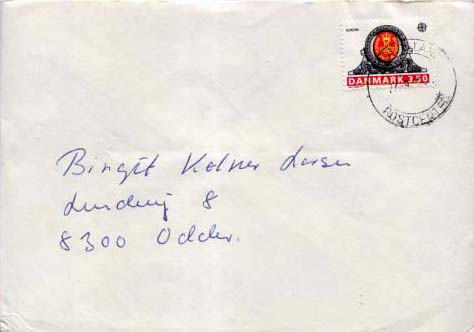 EUROPA
DANMARK 3.50
POSTCENTER
Birgit Kolner Larsen
8
8300 Odder.